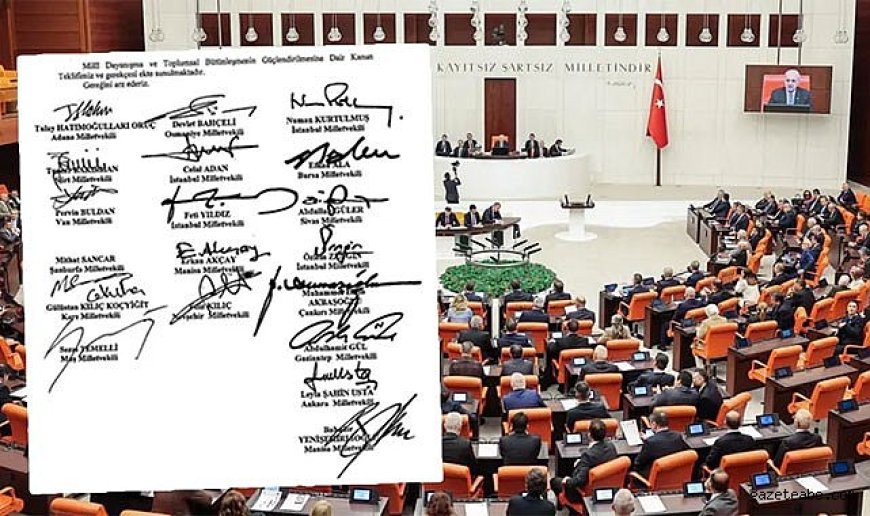 Millî Dayanışma ve Toplumsal Bütünleşmenin Güçlendirilmesine Dair Kanun
Teklifimiz ve gerekçesi ekte sunulmaktadır.
Gereğini arz ederiz.
Tulay HATIMOĞULLARI ORUÇ
Adana Milletvekili
Devlet BAHÇELİ
Osmaniye Milletvekili
Numan KURTULMUŞ
İstanbul Milletvekili
Siirt Milletvekili
Celal ADAN
İstanbul Milletvekili
ALA
Bursa Milletvekili
Pervin BULDAN
Van Milletvekili
Feti YILDIZ
İstanbul Milletvekili
Abdullah GÜLER
Sivas Milletvekili
Mithat SANCAR
Şanlıurfa Milletvekili
Erkan AKÇAY
Manisa Milletvekili
Özlem ZENGİN
İstanbul Milletvekili
Gülistan KILIÇ KOÇYİĞİT
Kars Milletvekili
KILIÇ
Nevşehir Milletvekili
Muhammet
AKBAŞOĞLU
Çankırı Milletvekili
Sezai TEMELLİ
Muş Milletvekili
Abdulhamit GÜL
Gaziantep Milletvekili
Leyla ŞAHİN USTA
Ankara Milletvekili
YENİŞEHİRLİOĞLU
Manisa Milletvekili
KAYITSIZ ŞARTSIZ MİLLETİNDİR